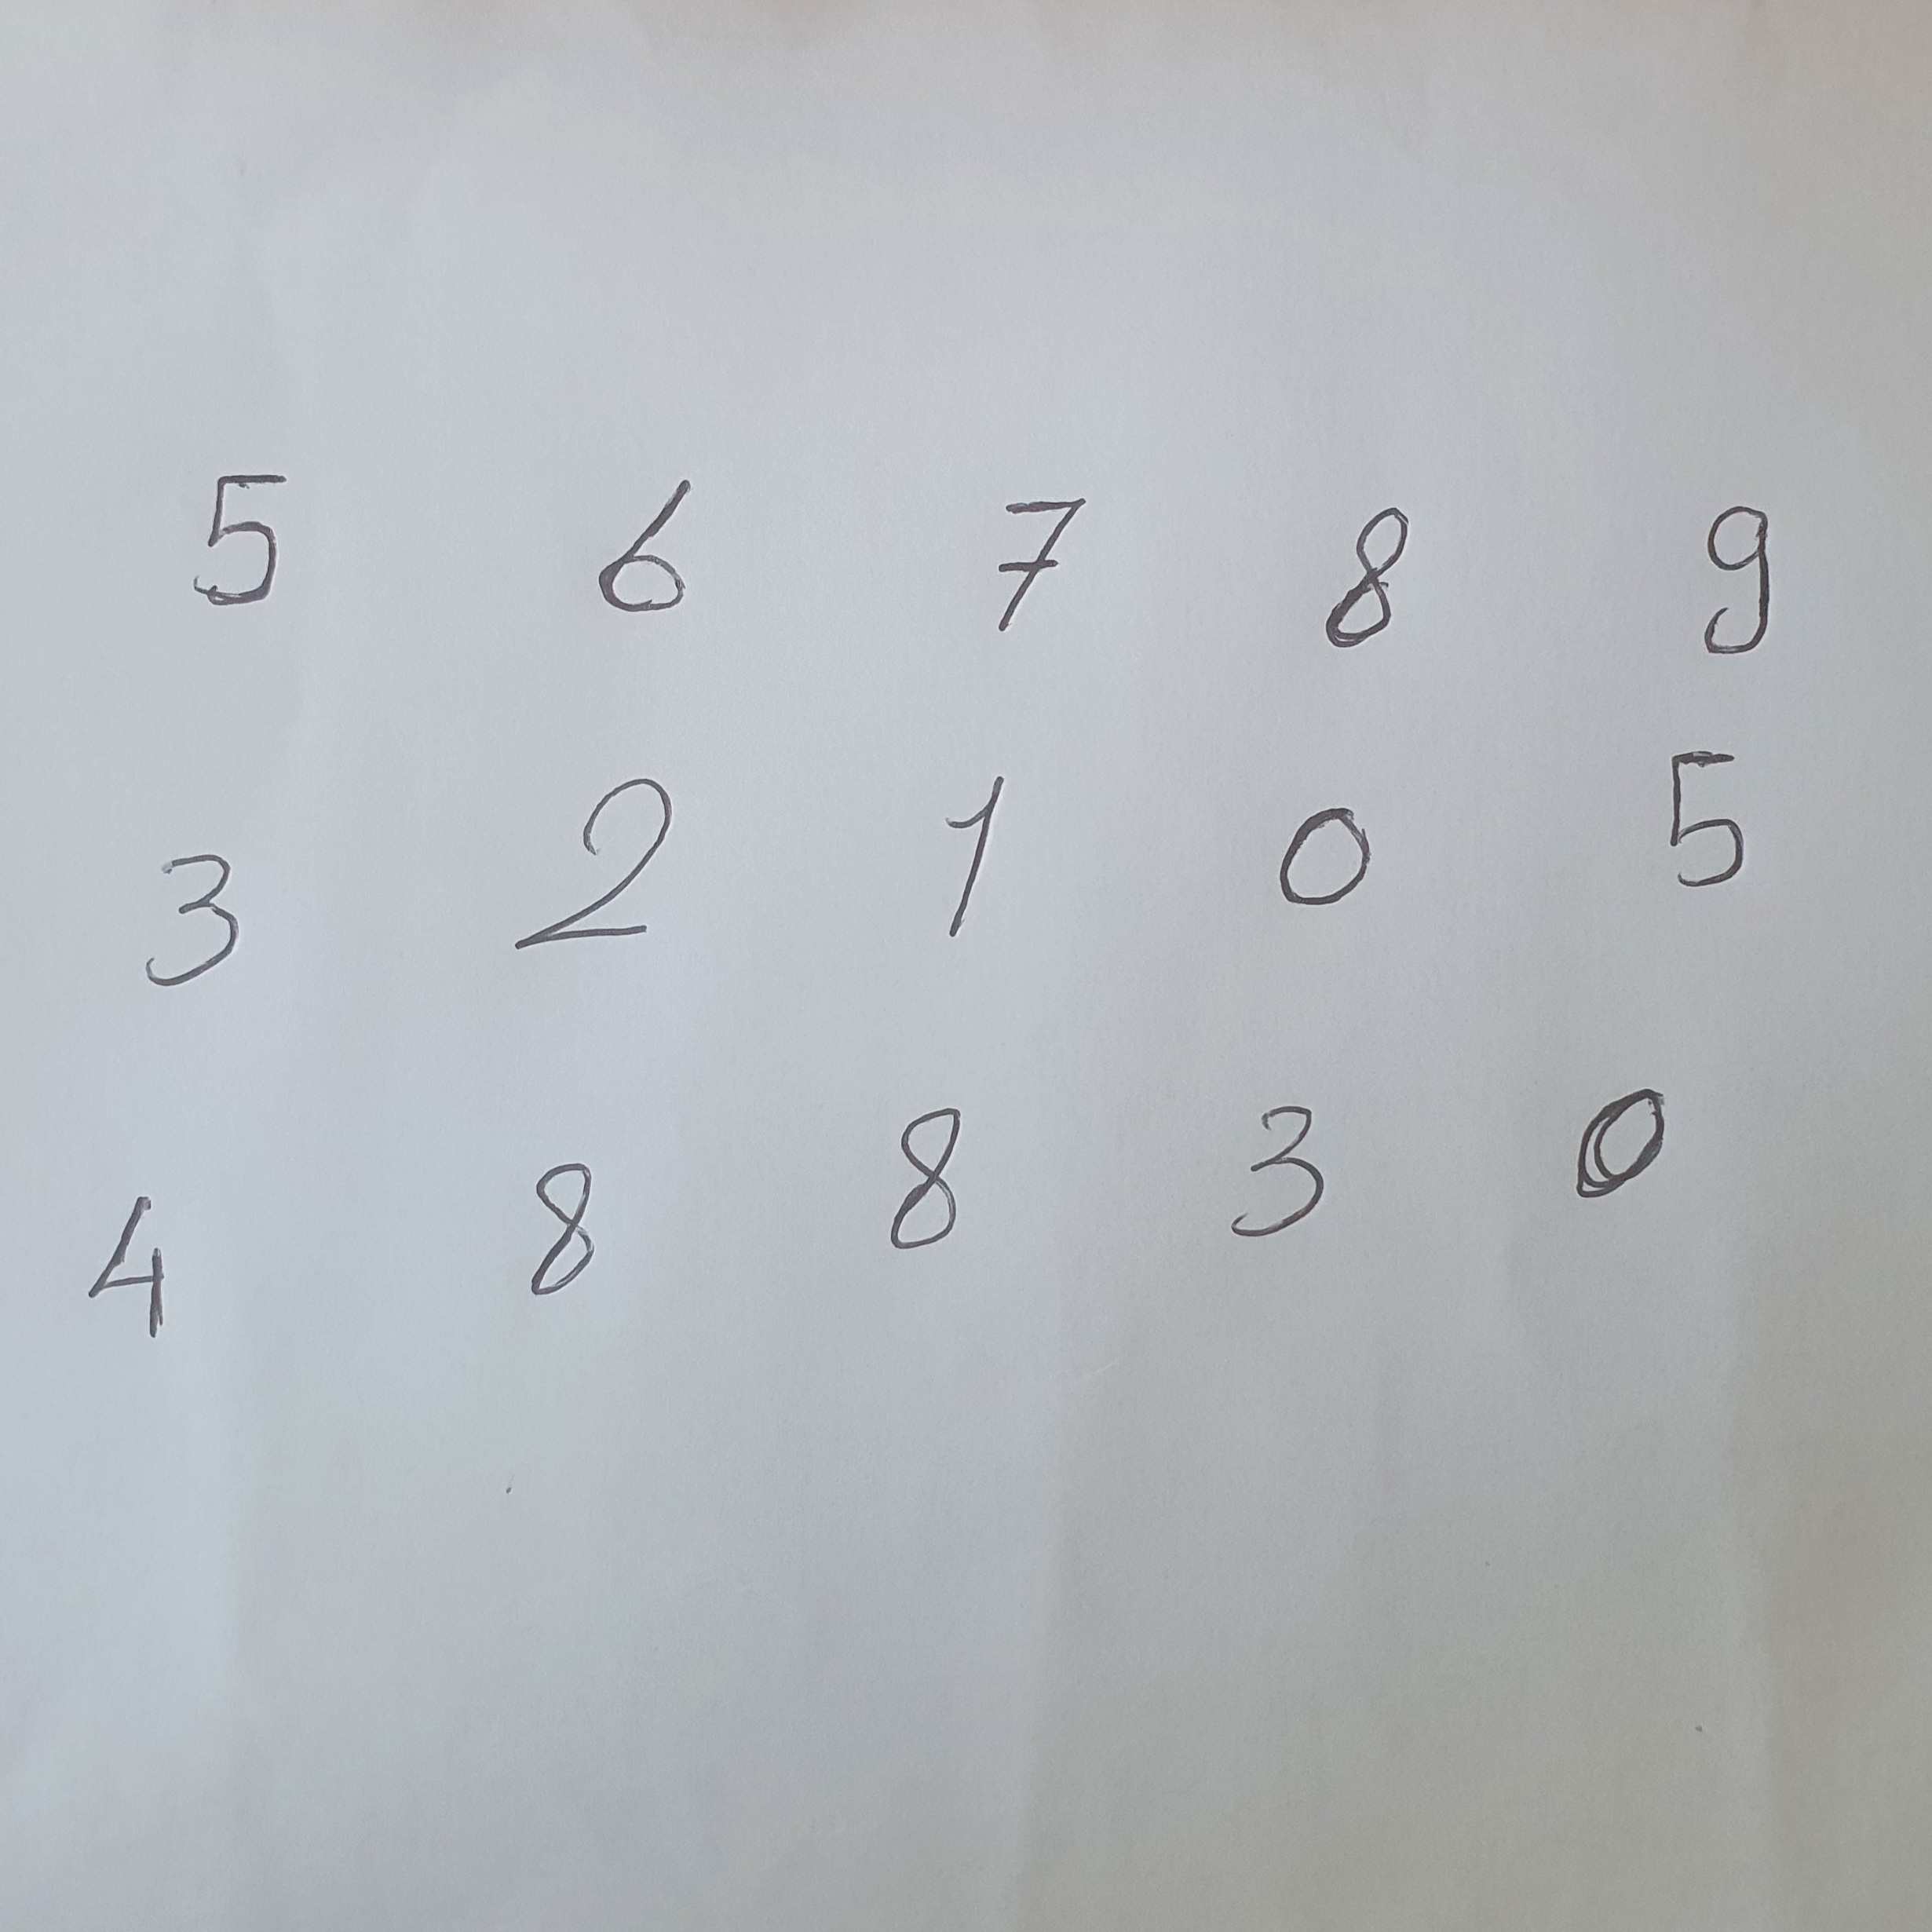 5 6 7 8 9
3 2 1 0 5
4 8 8 3 0